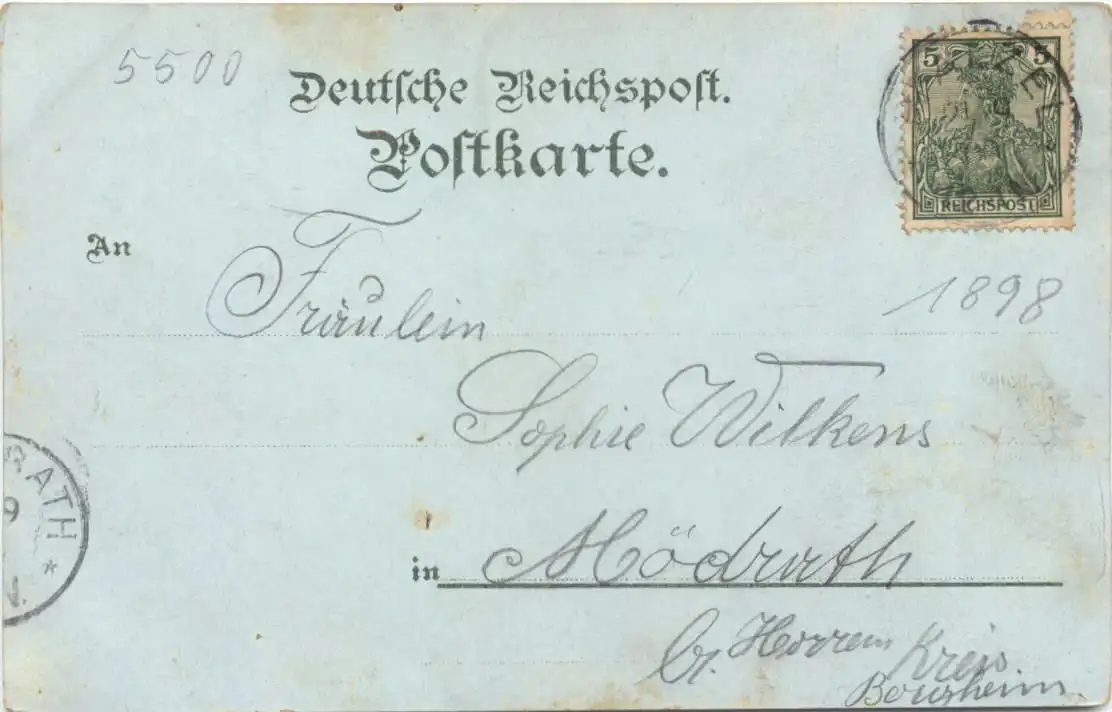 5500
Deutsche Reichspost.
Postkarte.
5 5
REICHSPOST
An
Fräulein
1898
Sophie Wilkens
RATH
9
in Mödrath
b. Horrem Kreis
Bergheim.